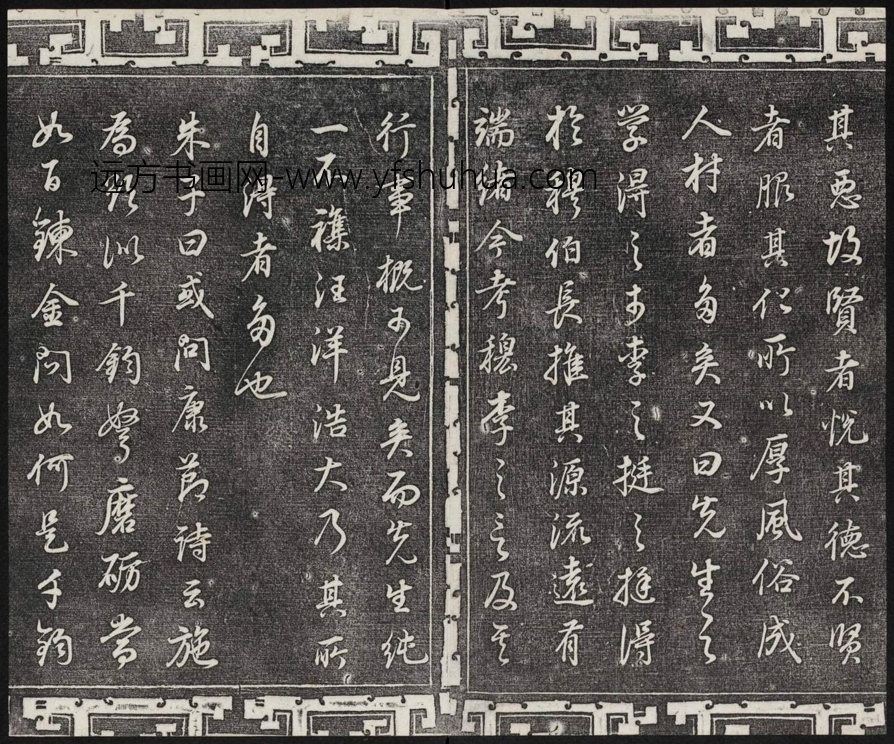 其惡故賢者悅其德不賢
者服其化所以厚風俗成
人材者多矣又曰先生之
学得之李挺之挺之得
於穆伯長推其源流遠有
端緒今考穆李之言及其
行事概可見矣而先生純
一不雜汪洋浩大乃其所
自得者多也
朱子曰或問康節詩云施
為欲似千鈞弩磨礪當
如百鍊金問如何是千鈞
远方书画网-www.yfshuhua.com